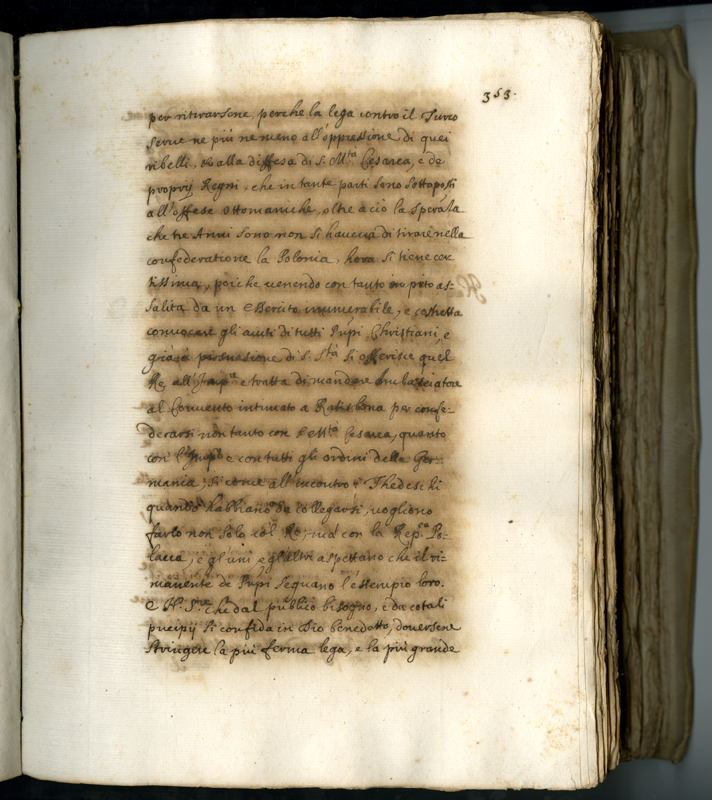 353.
per ritirarsene, perche la lega contro il Turco
serue ne più ne meno all'oppressione di quei
ribelli, che alla diffesa di S. M.tà Cesarea, e de
proprij Regni, che in tante parti sono sottoposti
all'offese ottomaniche, oltre a ciò la speranza
che tre Anni sono non si haueua di tirare nella
confederatione la Polonia, hora si tiene cer
tissima, poiche uenendo con tanto impeto as-
salita da un Essercito innumerabile, e costretta
conuocare gli aiuti di tutti Prñpi Christiani, e
persuasione di S. S.tà si offerisce quel
Re all'Imp.re e tratta di mandare Ambasciatore
al Conuento intimato a Ratisbona per confe-
derarsi non tanto con Cesarea, quanto
con l'Imp.o e con tutti gli ordini della Ger-
mania, si come all'incontro i Thedeschi
quando habbiano da collegarsi, uogliono
farlo non solo col Re, ma con la Rep.ca Po-
lacca, e gl'uni, e gl'altri aspettano che il ri-
manente de Prñpi seguano l'essempio loro.
E N. S.re che dal publico bisogno, e da cotali
prñcipij si confida in Dio benedetto, douersene
stringere la più ferma lega, e la più grande